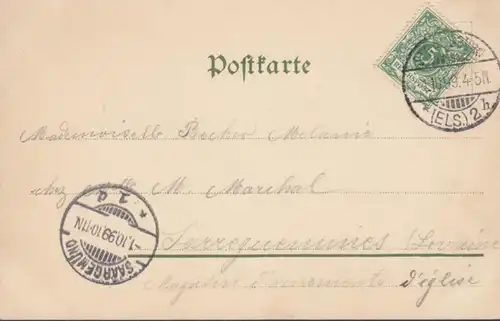 Postkarte
5
(ELS.) 2h
Mademoiselle Becker Melanie
chez M. Marchal
Sarreguemines (Lorraine
Magasin d'ornements d'église
SAARGEMÜND
1.10.99.10-11N.
* 2 d